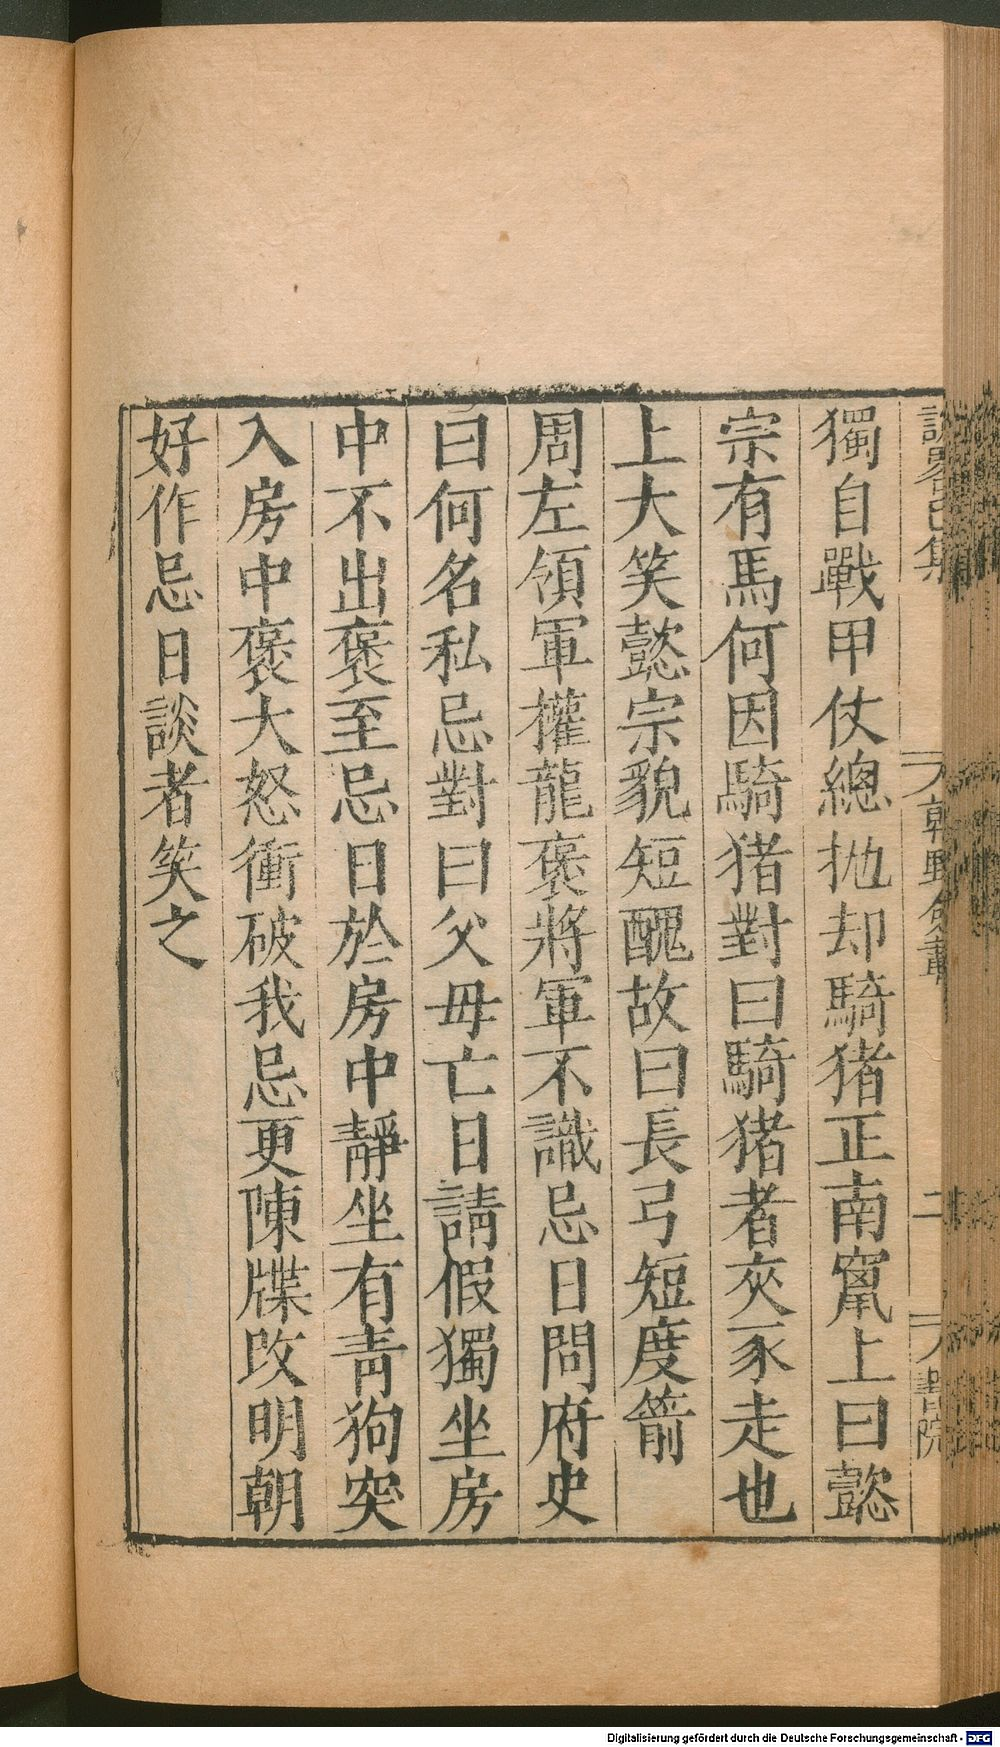 獨自戰甲仗總抛却騎猪正南竄上曰懿
宗有馬何因騎猪對曰騎猪者夾豕走也
上大笑懿宗貌短醜故曰長弓短度箭
周左領軍權龍褒將軍不識忌日問府史
曰何名私忌對曰父母亡日請假獨坐房
中不出褒至忌日於房中靜坐有青狗突
入房中褒大怒衝破我忌更陳牒改明朝
好作忌日談者笑之
Digitalisierung gefördert durch die Deutsche Forschungsgemeinschaft - DFG